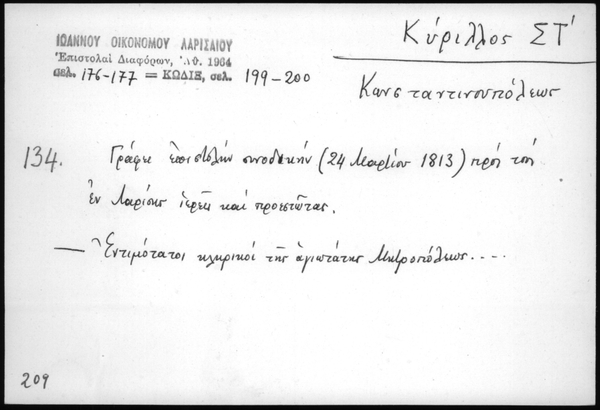 Κύριλλος ΣΤ´
Κωνσταντινουπόλεως
ΙΩΑΝΝΟΥ ΟΙΚΟΝΟΜΟΥ ΛΑΡΙΣΑΙΟΥ
Ἐπιστολαὶ Διαφόρων, Ἀθ. 1964
σελ. 176-177 = ΚΩΔΙΞ, σελ. 199-200
134. Γράφει ἐπιστολὴν συνοδικήν (24 Μαρτίου 1813) πρὸς τοὺς
ἐν Λαρίσῃ ἱερεῖς καὶ προεστῶτας.
— Ἐντιμότατοι κληρικοὶ τῆς ἁγιωτάτης Μητροπόλεως....
209